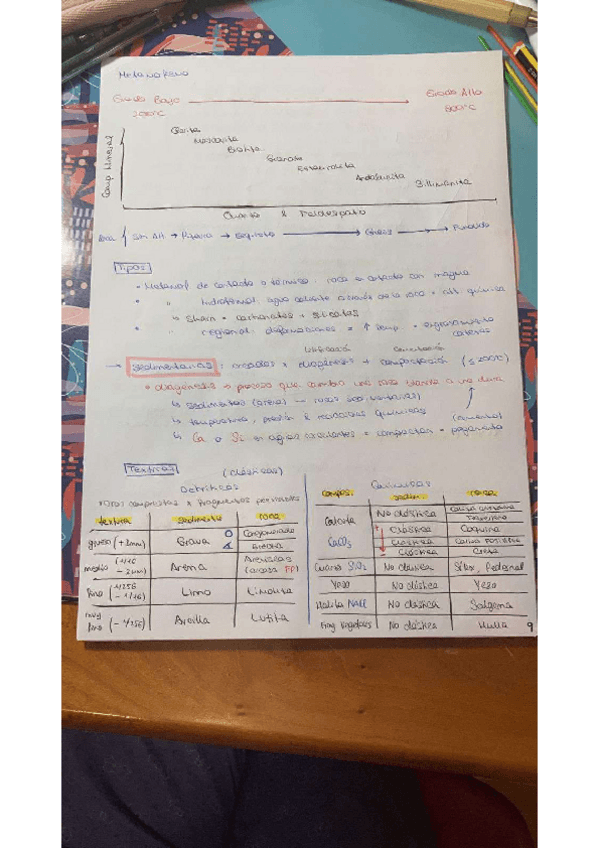 Metamorfismo
Grado Bajo → Grado Alto
200°C 800°C
Comp Mineral
Clorita
Moscovita
Biotita
Granate
Estaurolita
Andalucita
Sillimanita
Cuarzo & Feldespato
Sin Alt → Pizarra → Esquisto → Gneis → Fundido
Tipos
• Metamorf de contacto o térmico: roca en contacto con magma
" hidrotermal: agua caliente a través de la roca = alt. química
↳ Skarn = carbonatos + silicatos
" regional: deformaciones = ↑ temp.
Litificació Cementació
→ Sedimentarias: creadas x diagénesis + compactación (≤ 200°C)
• diagénesis → proceso que cambia una roca blanda a una dura
↳ sedimentos (arena) — rocas sedimentarias
↳ temperatura, presión & reacciones químicas (cemento)
↳ Ca o Si en aguas circulantes = compactan = pegamento
Texturas
Detríticas (clásticas)
rocas compuestas x fragmentos
textura sedimento roca
grueso (+2mm) Grava Conglomerado
Brecha
medio (1/16 - 2mm) Arena Areniscas
(arcosa FP)
fino (1/256 - 1/16) Limo Limolita
muy fino (- 1/256) Arcilla Lutita
Químicas
compos. sedim. roca
Calcita CaCO₃ No clástica Caliza cristalina
Travertino
Clástica Coquina
Clástica Caliza fosilífera
Clástica Creta
Cuarzo SiO₂ No clástica Sílex, Pedernal
Yeso No clástica Yeso
Halita NaCl No clástica Salgema
Frag Vegetales No clástica Hulla
9